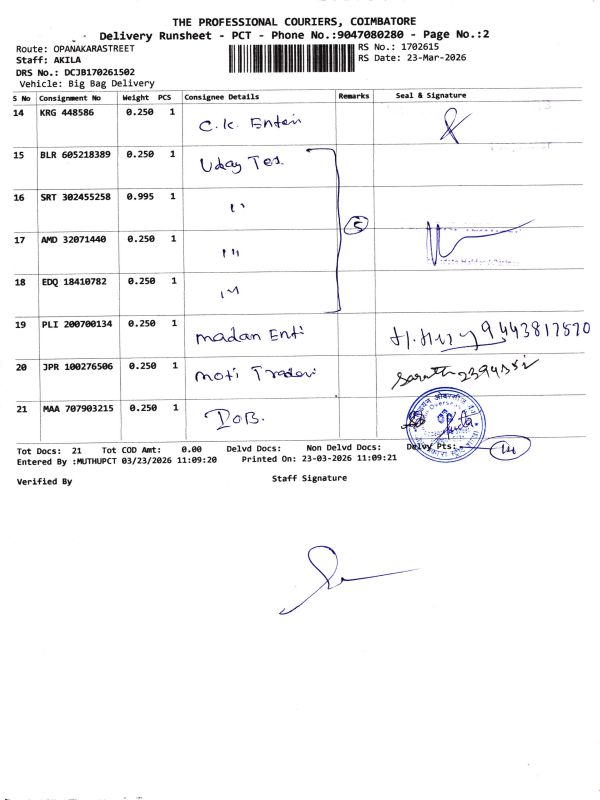 THE PROFESSIONAL COURIERS, COIMBATORE
Delivery Runsheet - PCT - Phone No.:9047080280 - Page No.:2
Route: OPANAKARASTREET
Staff: AKILA
DRS No.: DCJB170261502
Vehicle: Big Bag Delivery
RS No.: 1702615
RS Date: 23-Mar-2026
S No Consignment No Weight PCS Consignee Details Remarks Seal & Signature
14 KRG 448586 0.250 1 C.K. Enteri
15 BLR 605218389 0.250 1 Uday Tex.
16 SRT 302455258 0.995 1 "
5
17 AMD 32071440 0.250 1
18 EDQ 18410782 0.250 1
19 PLI 200700134 0.250 1 madan Enti 9443817570
20 JPR 100276506 0.250 1 moti Traderi
21 MAA 707903215 0.250 1 IOB.
Tot Docs: 21 Tot COD Amt: 0.00 Delvd Docs: Non Delvd Docs: Delvy Pts: 14
Entered By :MUTHUPCT 03/23/2026 11:09:20 Printed On: 23-03-2026 11:09:21
Verified By Staff Signature